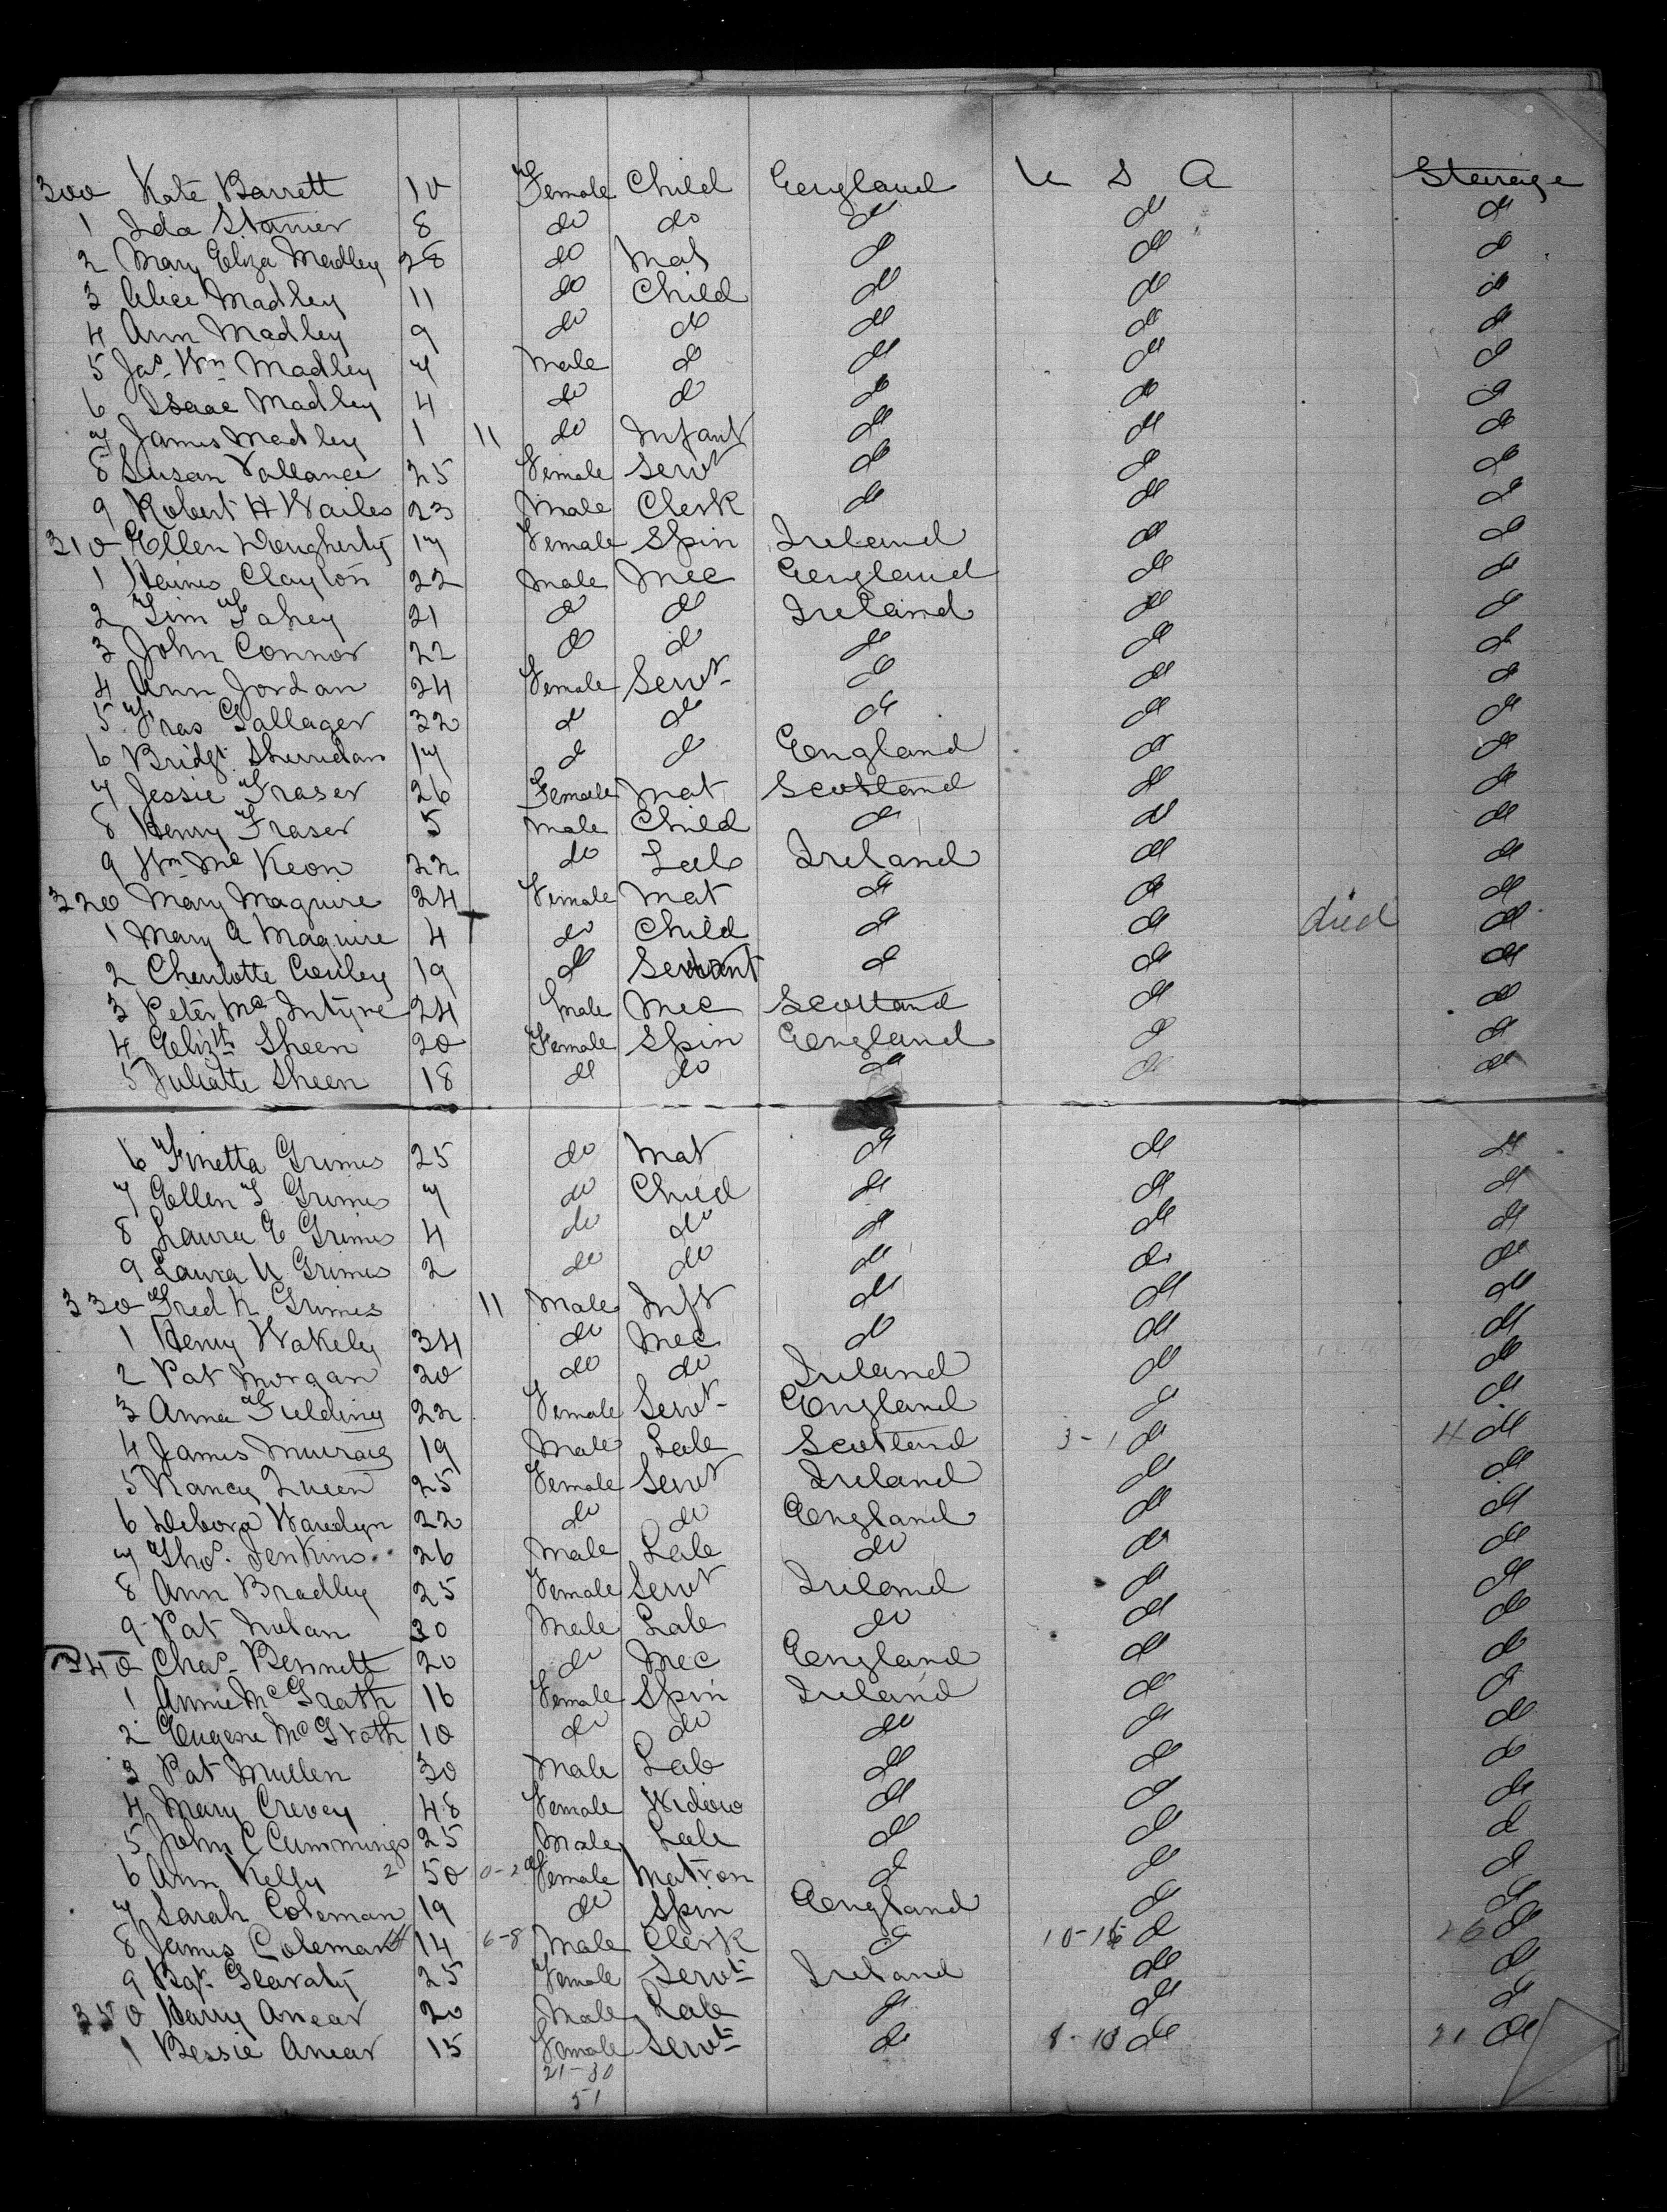 300 Kate Barrett 10 Female Child England U S A Steerage
1 Ida Stanier 8 do do do do do
2 Mary Eliza Madley 28 do Mat do do do
3 Alice Madley 11 do Child do do do
4 Ann Madley 9 do do do do do
5 Jas. Wm Madley 7 Male do do do do
6 Isaac Madley 4 do do do do do
7 James Madley 1 11 do Infant do do do
8 Susan Vallance 25 Female Servt do do do
9 Robert H Wailes 23 Male Clerk do do do
310 Ellen Dougherty 17 Female Spin Ireland do do
1 Haines Clayton 22 Male Mec England do do
2 Tim Fahey 21 do do Ireland do do
3 John Connor 22 do do do do do
4 Ann Jordan 24 Female Servt do do do
5 Fras Gallager 32 do do do do do
6 Bridgt Sheridan 17 do do England do do
7 Jessie Fraser 26 Female Mat Scotland do do
8 Henry Fraser 5 Male Child do do do
9 Wm McKeon 22 do Lab Ireland do do
320 Mary Maguire 24 Female Mat do do do
1 Mary A Maguire 4 do Child do do died do
2 Charlotte 19 do Servant do do do
3 Peter McIntyre 24 Male Mec Scotland do do
4 Elizth Sheen 20 Female Spin England do do
5 Juliatte Sheen 18 do do do do do
6 Finetta Grimes 25 do Mat do do do
7 Ellen F Grimes 7 do Child do do do
8 Laura E Grimes 4 do do do do do
9 Laura Grimes 2 do do do do do
330 Fred K Grimes 11 Male Inft do do do
1 Henry Wakely 34 do Mec do do do
2 Pat Morgan 20 do do Ireland do do
3 Anna Fielding 22 Female Servt England do do
4 James 19 Male Lab Scotland 3-1 do 4 do
5 Nancy Queen 25 Female Servt Ireland do do
6 Debora 22 do do England do do
7 Thos. Jenkins 26 Male Lab do do do
8 Ann Bradley 25 Female Servt Ireland do do
9 Pat Nolan 30 Male Lab do do do
340 Chas. Bennett 20 do Mec England do do
1 Annie McGrath 16 Female Spin Ireland do do
2 Eugene McGrath 10 do do do do do
3 Pat Mullen 30 Male Lab do do do
4 Mary Crevey 48 Female Widow do do do
5 John C Cummings 25 Male Lab do do do
6 Ann Kelly 2 50 0-2 Female Matron do do do
7 Sarah Coleman 19 do Spin England do do
8 James Coleman 14 6-8 Male Clerk do 10-15 do 26 do
9 Bgt. Gearaty 25 Female Servt Ireland do do
350 Harry Anear 20 Male Lab do do do
1 Bessie Anear 15 Female Servt do 8-13 do 21 do
21-30
51